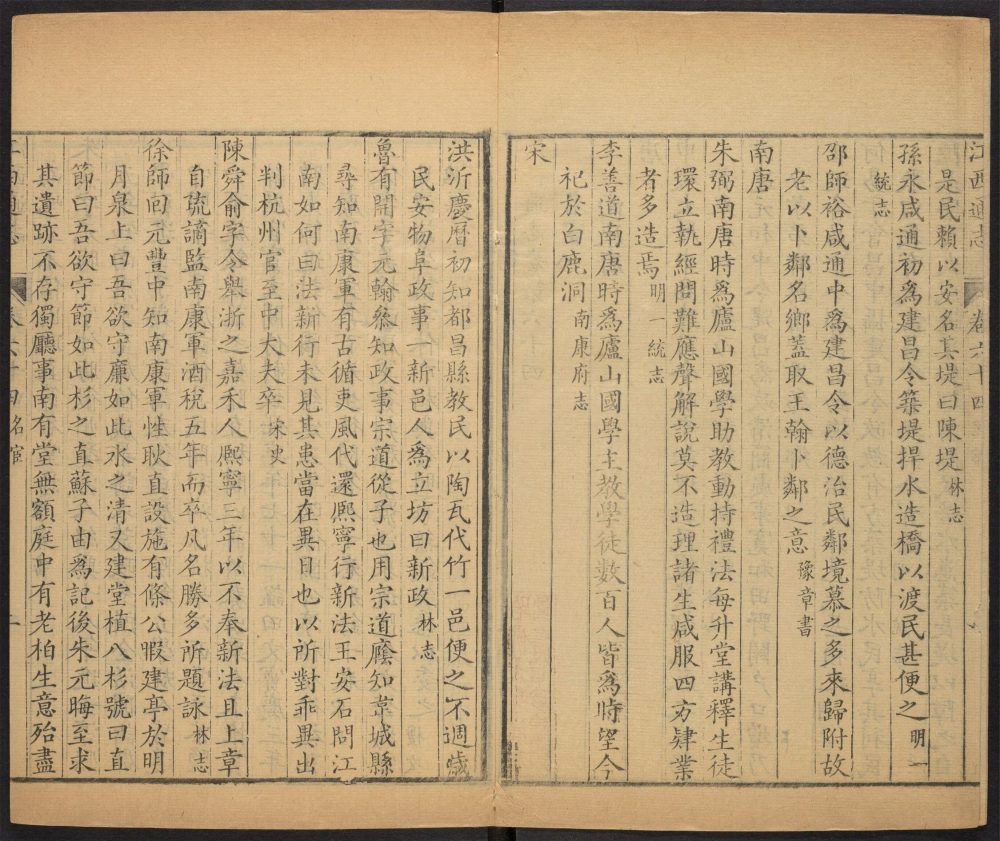 江西通志 卷六十四
是民賴以安名其堤曰陳堤林志
孫永咸通初為建昌令築堤捍水造橋以渡民甚便之明一
統志
邵師裕咸通中為建昌令以德治民鄰境慕之多來歸附故
老以卜鄰名鄉蓋取王翰卜鄰之意豫章書
南唐
朱弼南唐時為廬山國學助教動持禮法每升堂講釋生徒
環立執經問難應聲解說莫不造理諸生咸服四方肄業
者多造焉明一統志
李善道南唐時為廬山國學主教學徒數百人皆為時望今
祀於白鹿洞南康府志
宋
洪沂慶曆初知都昌縣教民以陶瓦代竹一邑便之不週歲
民安物阜政事一新邑人為立坊曰新政林志
魯有開字元翰叅知政事宗道從子也用宗道廕知韋城縣
尋知南康軍有古循吏風代還熙寧行新法王安石問江
南如何曰法新行未見其患當在異日也以所對乖異出
判杭州官至中大夫卒宋史
陳舜俞字令舉浙之嘉禾人熙寧三年以不奉新法且上章
自疏謫監南康軍酒稅五年而卒凡名勝多所題詠林志
徐師囘元豐中知南康軍性耿直設施有條公暇建亭於明
月泉上曰吾欲守廉如此水之清又建堂植八杉號曰直
節曰吾欲守節如此杉之直蘇子由為記後朱元晦至求
其遺跡不存獨廳事南有堂無額庭中有老柏生意殆盡
江西通志 卷六十四名宦 二